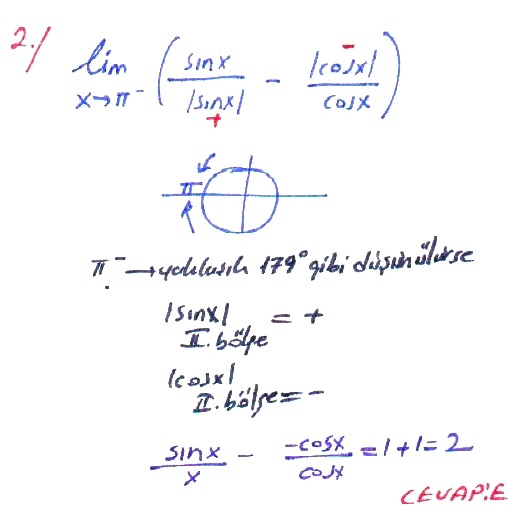 2./ lim x→π⁻ ( sinx / |sinx| − |cosx| / cosx )
+ −
π
π⁻ → yaklaşık 179° gibi düşünülürse
|sinx| = +
II. bölge
|cosx|
II. bölge = −
sinx / x − −cosx / cosx = 1 + 1 = 2
CEVAP:E